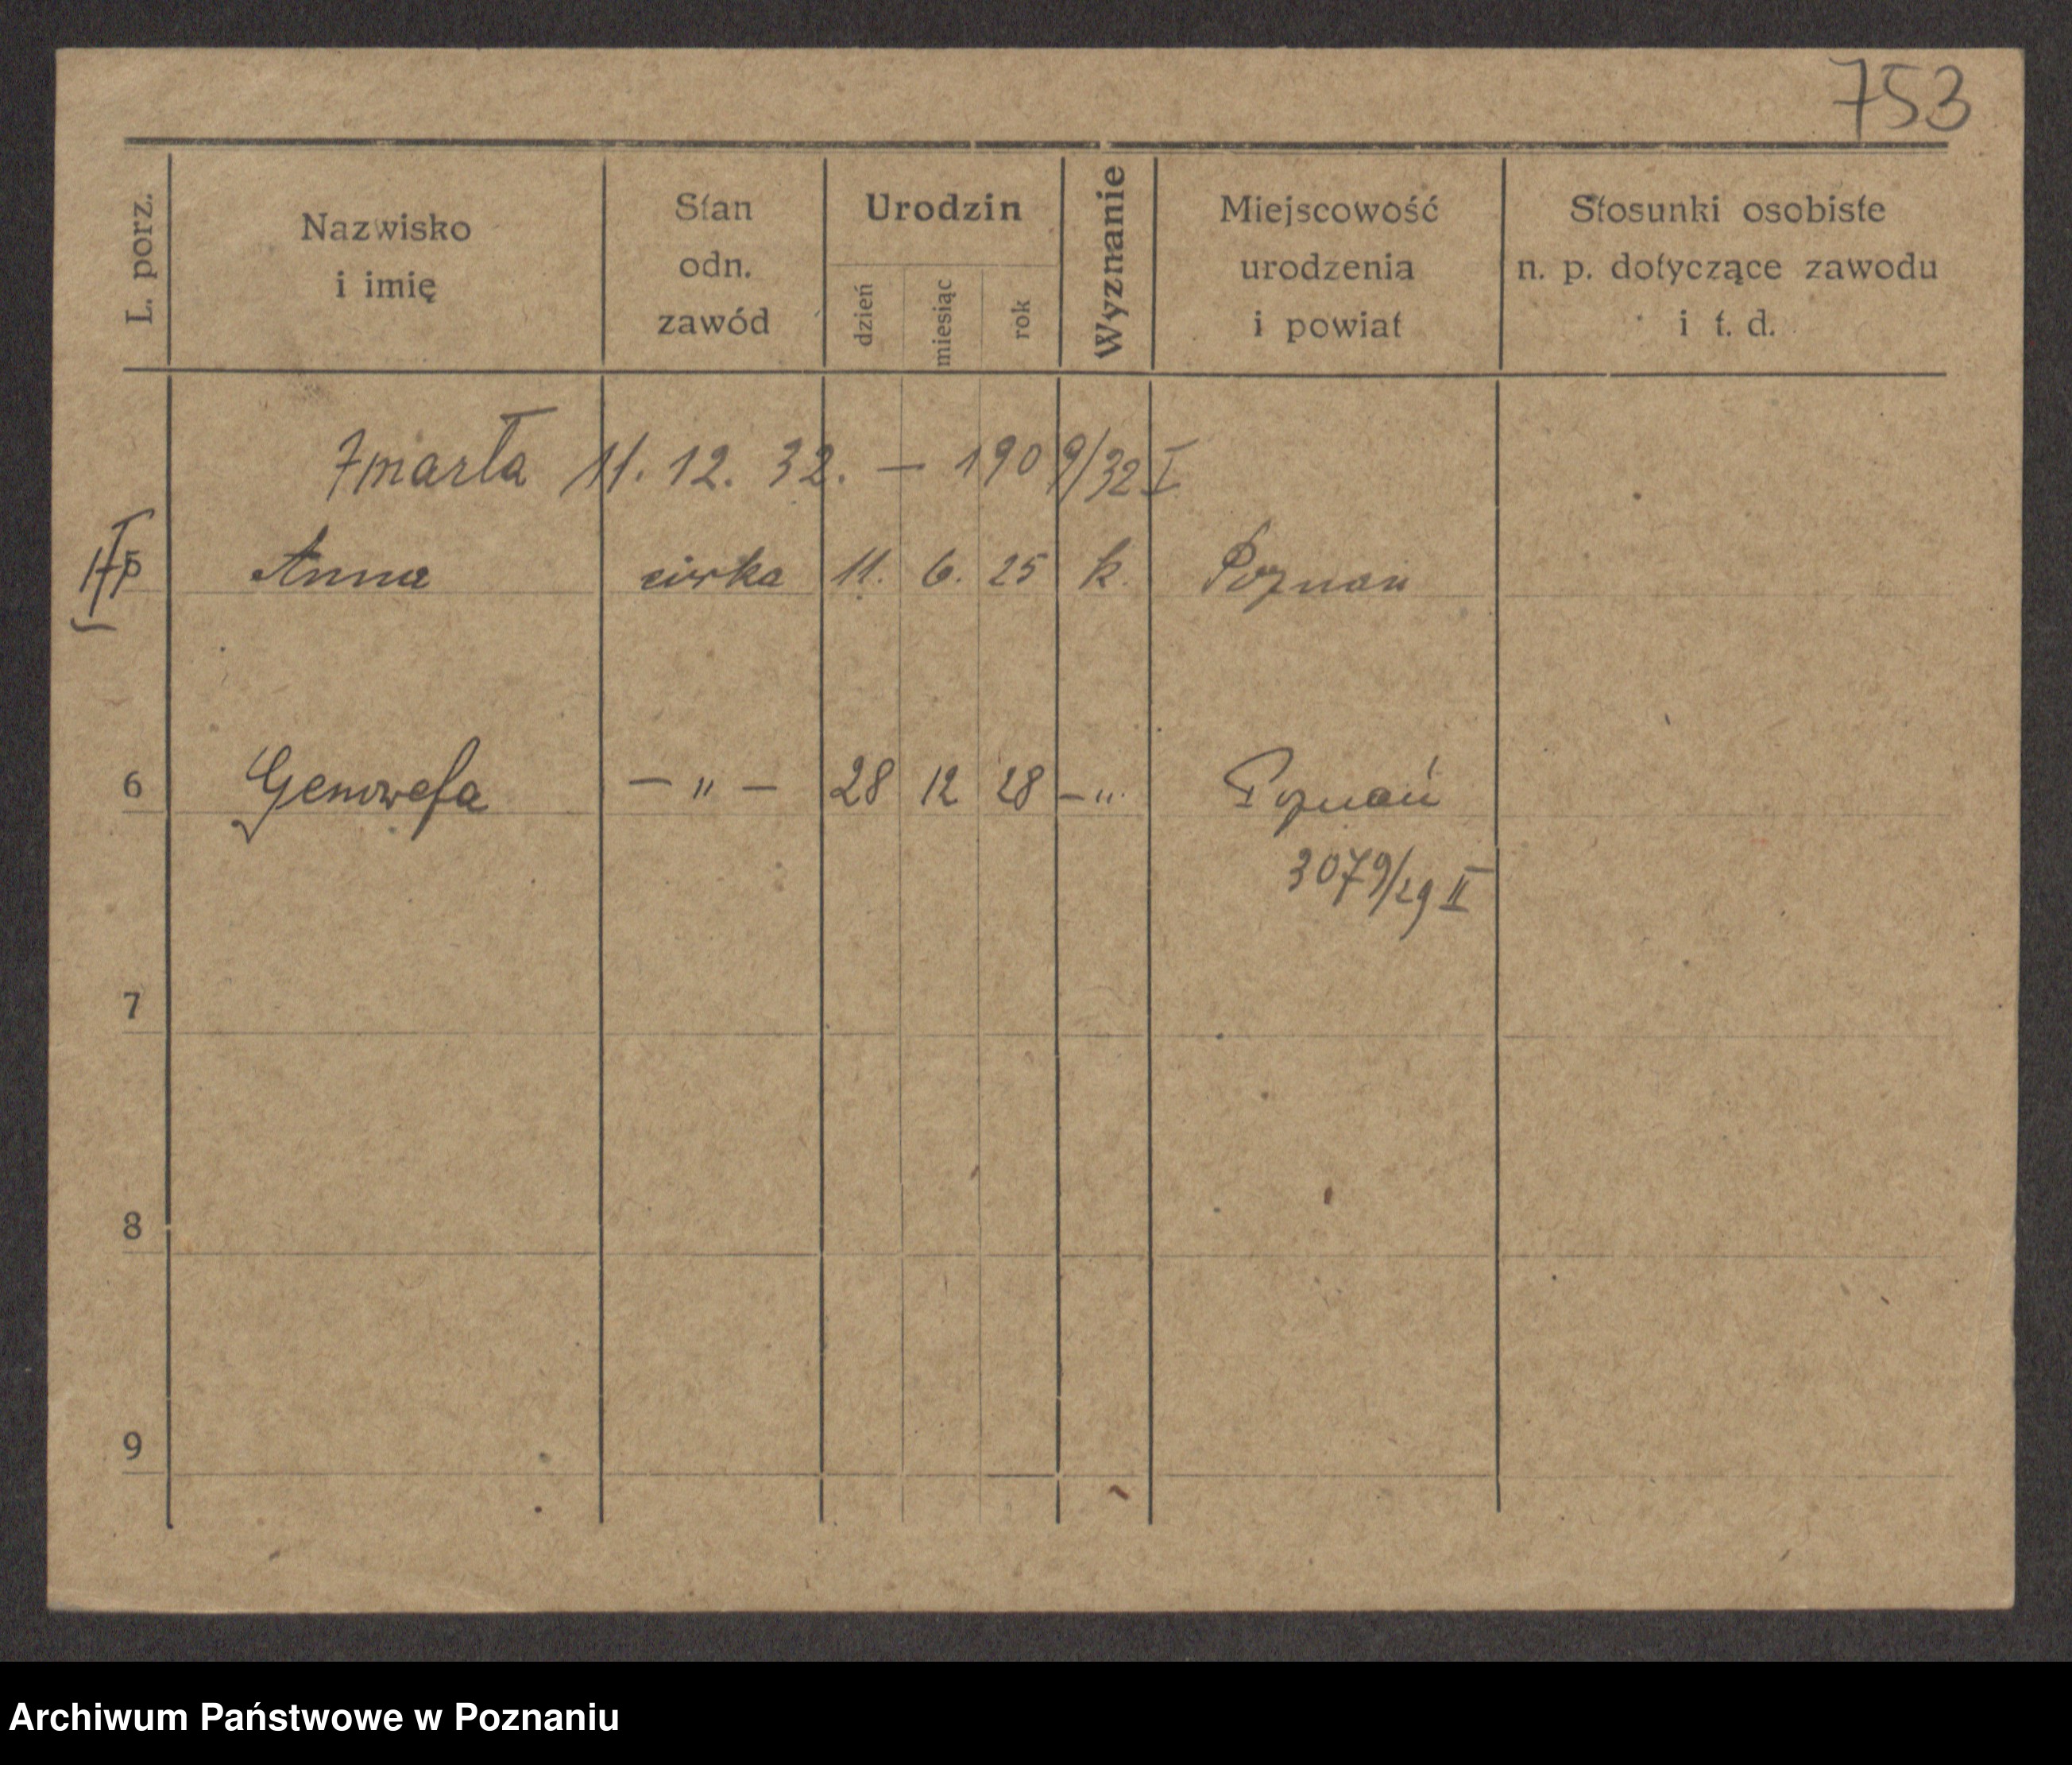 753
L. porz.
Nazwisko
i imię
Stan
odn.
zawód
Urodzin
dzień
miesiąc
rok
Wyznanie
Miejscowość
urodzenia
i powiat
Stosunki osobiste
n. p. dotyczące zawodu
i t. d.
Zmarła 11. 12. 32. — 1909/32 I
5 Anna córka 11. 6. 25 k. Poznań
6 Genowefa — „ — 28 12 28 — „ Poznań
3079/29 II
7
8
9
Archiwum Państwowe w Poznaniu